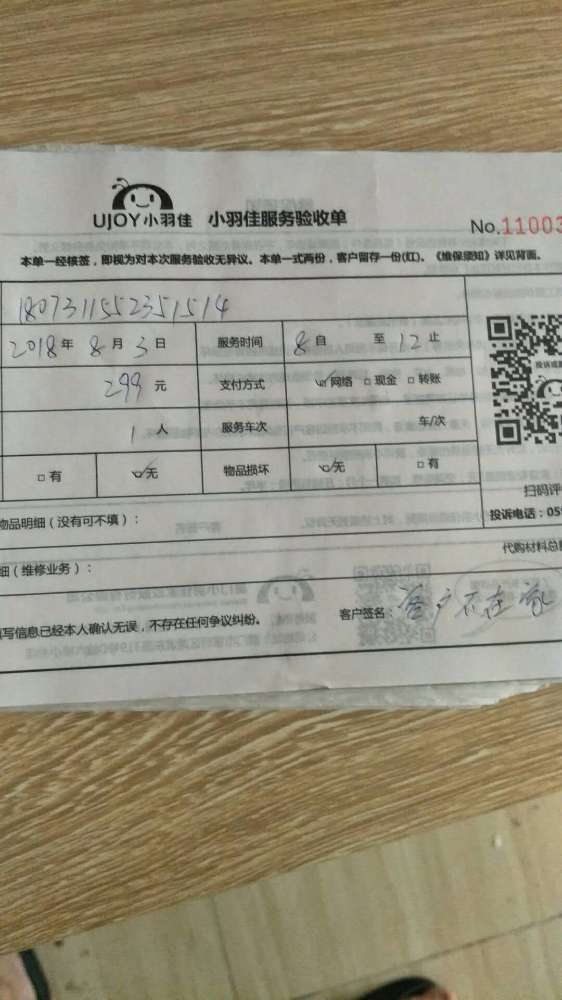 UJOY小羽佳 小羽佳服务验收单
No.11003
本单一经核签，即视为对本次服务验收无异议。本单一式两份，客户留存一份(红)。《维保须知》详见背面。
1807311552351514
2018年8月3日 服务时间 8自 至12止
299元 支付方式 网络 现金 转账
投诉或
1人 服务车次 车/次
有 无 物品损坏 无 有
扫码评
物品明细（没有可不填）： 投诉电话：059
代购材料总
细（维修业务）：
写信息已经本人确认无误，不存在任何争议纠纷。 客户签名：客户不在家